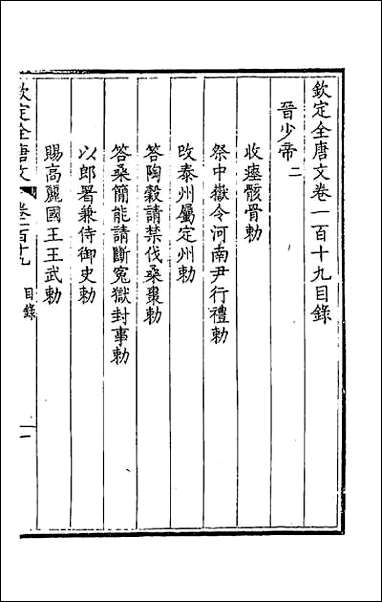 欽定全唐文卷一百十九目錄
晉少帝二
收瘞骸骨勅
祭中嶽令河南尹行禮勅
改泰州屬定州勅
答陶穀請禁伐桑棗勅
答桑簡能請斷寃獄封事勅
以郎署兼侍御史勅
賜高麗國王王武勅
欽定全唐文 卷一百十九 目錄 一